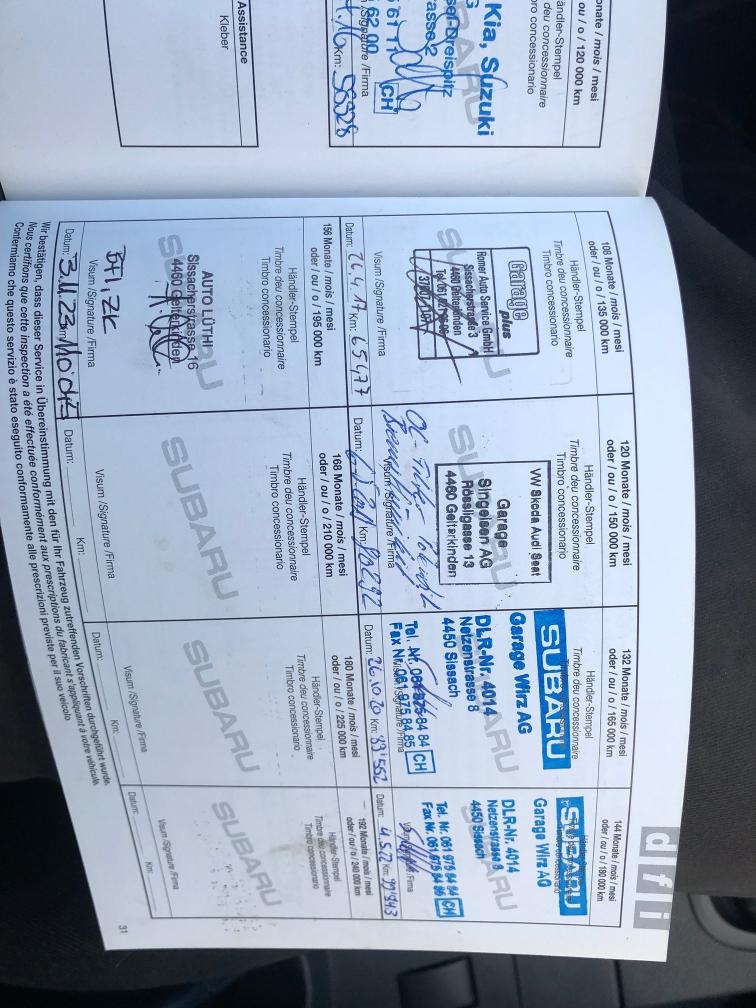 onate / mois / mesi
ou / o / 120 000 km
Händler-Stempel
deu concessionnaire
bro concessionario
Kia, Suzuki
CH
Km: 58328
Assistance
Kleber
d f i
108 Monate / mois / mesi
oder / ou / o / 135 000 km
Händler-Stempel
Timbre deu concessionnaire
Timbro concessionario
Garage
plus
Romer Auto Service GmbH
Sissacherstrasse 3
4460 Gelterkinden
SUBARU
Visum /Signature /Firma
Datum: 26.4.17 Km: 65477
120 Monate / mois / mesi
oder / ou / o / 150 000 km
Händler-Stempel
Timbre deu concessionnaire
Timbro concessionario
VW Skoda Audi Seat
Garage
Singeisen AG
Rössligasse 13
4460 Gelterkinden
SUBARU
Visum /Signature /Firma
Datum: Km:
132 Monate / mois / mesi
oder / ou / o / 165 000 km
Händler-Stempel
Timbre deu concessionnaire
Timbro concessionario
SUBARU
Garage Wirz AG
DLR-Nr. 4014
Netzenstrasse 8
4450 Sissach
SUBARU
Visum /Signature /Firma
Fax Nr. 061 975 84 85 CH
Datum: 26.10.20 Km: 89'552
144 Monate / mois / mesi
oder / ou / o / 180 000 km
SUBARU
Garage Wirz AG
DLR-Nr. 4014
Netzenstrasse 8
4450 Sissach
SUBARU
Tel. Nr. 061 975 84 84
Fax Nr. 061 975 84 85 CH
Datum: 4.5.22 Km: 99'943
156 Monate / mois / mesi
oder / ou / o / 195 000 km
Händler-Stempel
Timbre deu concessionnaire
Timbro concessionario
AUTO LÜTHI
Sissacherstrasse 16
4460 Gelterkinden
SUBARU
Visum /Signature /Firma
Datum: 3.11.23
168 Monate / mois / mesi
oder / ou / o / 210 000 km
Händler-Stempel
Timbre deu concessionnaire
Timbro concessionario
SUBARU
Visum /Signature /Firma
Datum: Km:
180 Monate / mois / mesi
oder / ou / o / 225 000 km
Händler-Stempel
Timbre deu concessionnaire
Timbro concessionario
SUBARU
Visum /Signature /Firma
Datum: Km:
192 Monate / mois / mesi
oder / ou / o / 240 000 km
Händler-Stempel
Timbre deu concessionnaire
Timbro concessionario
SUBARU
Visum /Signature /Firma
Datum: Km:
Wir bestätigen, dass dieser Service in Übereinstimmung mit den für Ihr Fahrzeug zutreffenden Vorschriften durchgeführt wurde.
Nous certifions que cette inspection a été effectuée conformément aux prescriptions du fabricant s'appliquant à votre véhicule.
Confermiamo che questo servizio è stato eseguito conformamente alle prescrizioni previste per il suo veicolo
31